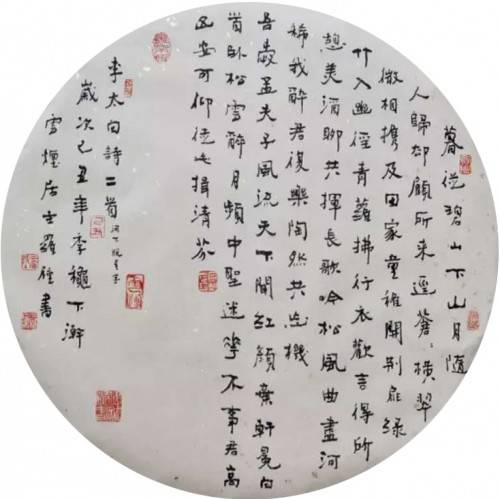 暮從碧山下山月隨
人歸却顧所來逕蒼〻橫翠
微相携及田家童稚開荆扉綠
竹入幽徑青蘿拂行衣歡言得所
憩美酒聊共揮長歌吟松風曲盡河
稀我醉君復樂陶然共忘機
吾愛孟夫子風流天下聞紅顏棄軒冕白
首卧松雪醉月頻中聖迷花不事君高
山安可仰從此揖清芬
李太白詩二首 河下脱星字
歲次己丑年季穐下澣
雪煙居士羅書